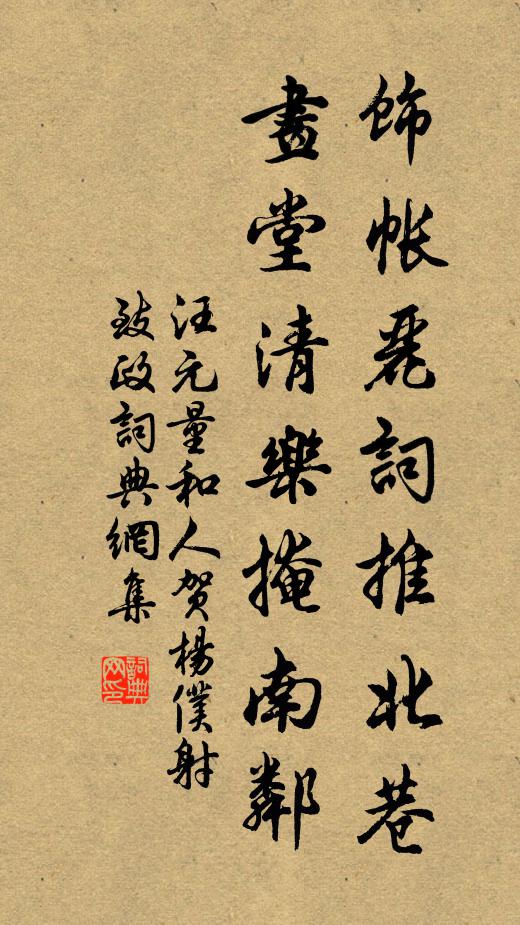 飾帳麗詞推北巷
畫堂清樂掩南鄰
汪元量和人賀楊僕射
致政詞典網集
詞典网印